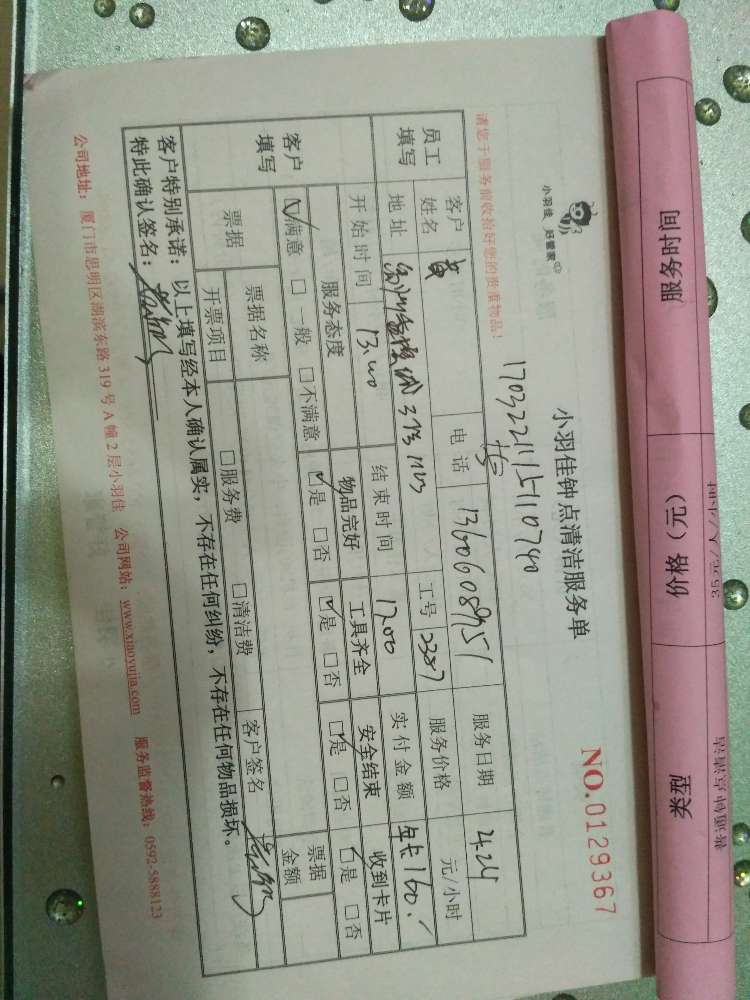 服务时间
价格（元）
类型
35元/人/小时
普通钟点清洁
小羽佳 好管家
小羽佳钟点清洁服务单
NO.0129367
请您于服务前收拾好您的贵重物品！
员工填写
客户姓名
黄
电话
13606089751
服务日期
4.24
地址
工号
2387
服务价格
元/小时
开始时间
13:00
结束时间
17:00
实付金额
年卡160.
客户填写
服务态度
物品完好
工具齐全
安全结束
收到卡片
☑满意 □一般 □不满意
☑是 □否
☑是 □否
☑是 □否
☑是 □否
票据
票据名称
客户签名
票据金额
开票项目
□服务费 □清洁费
客户特别承诺：以上填写经本人确认属实，不存在任何纠纷，不存在任何物品损坏。
特此确认签名：
公司地址：厦门市思明区湖滨东路319号A幢2层小羽佳 公司网站：www.xiaoyujia.com 服务监督热线：0592-5888123